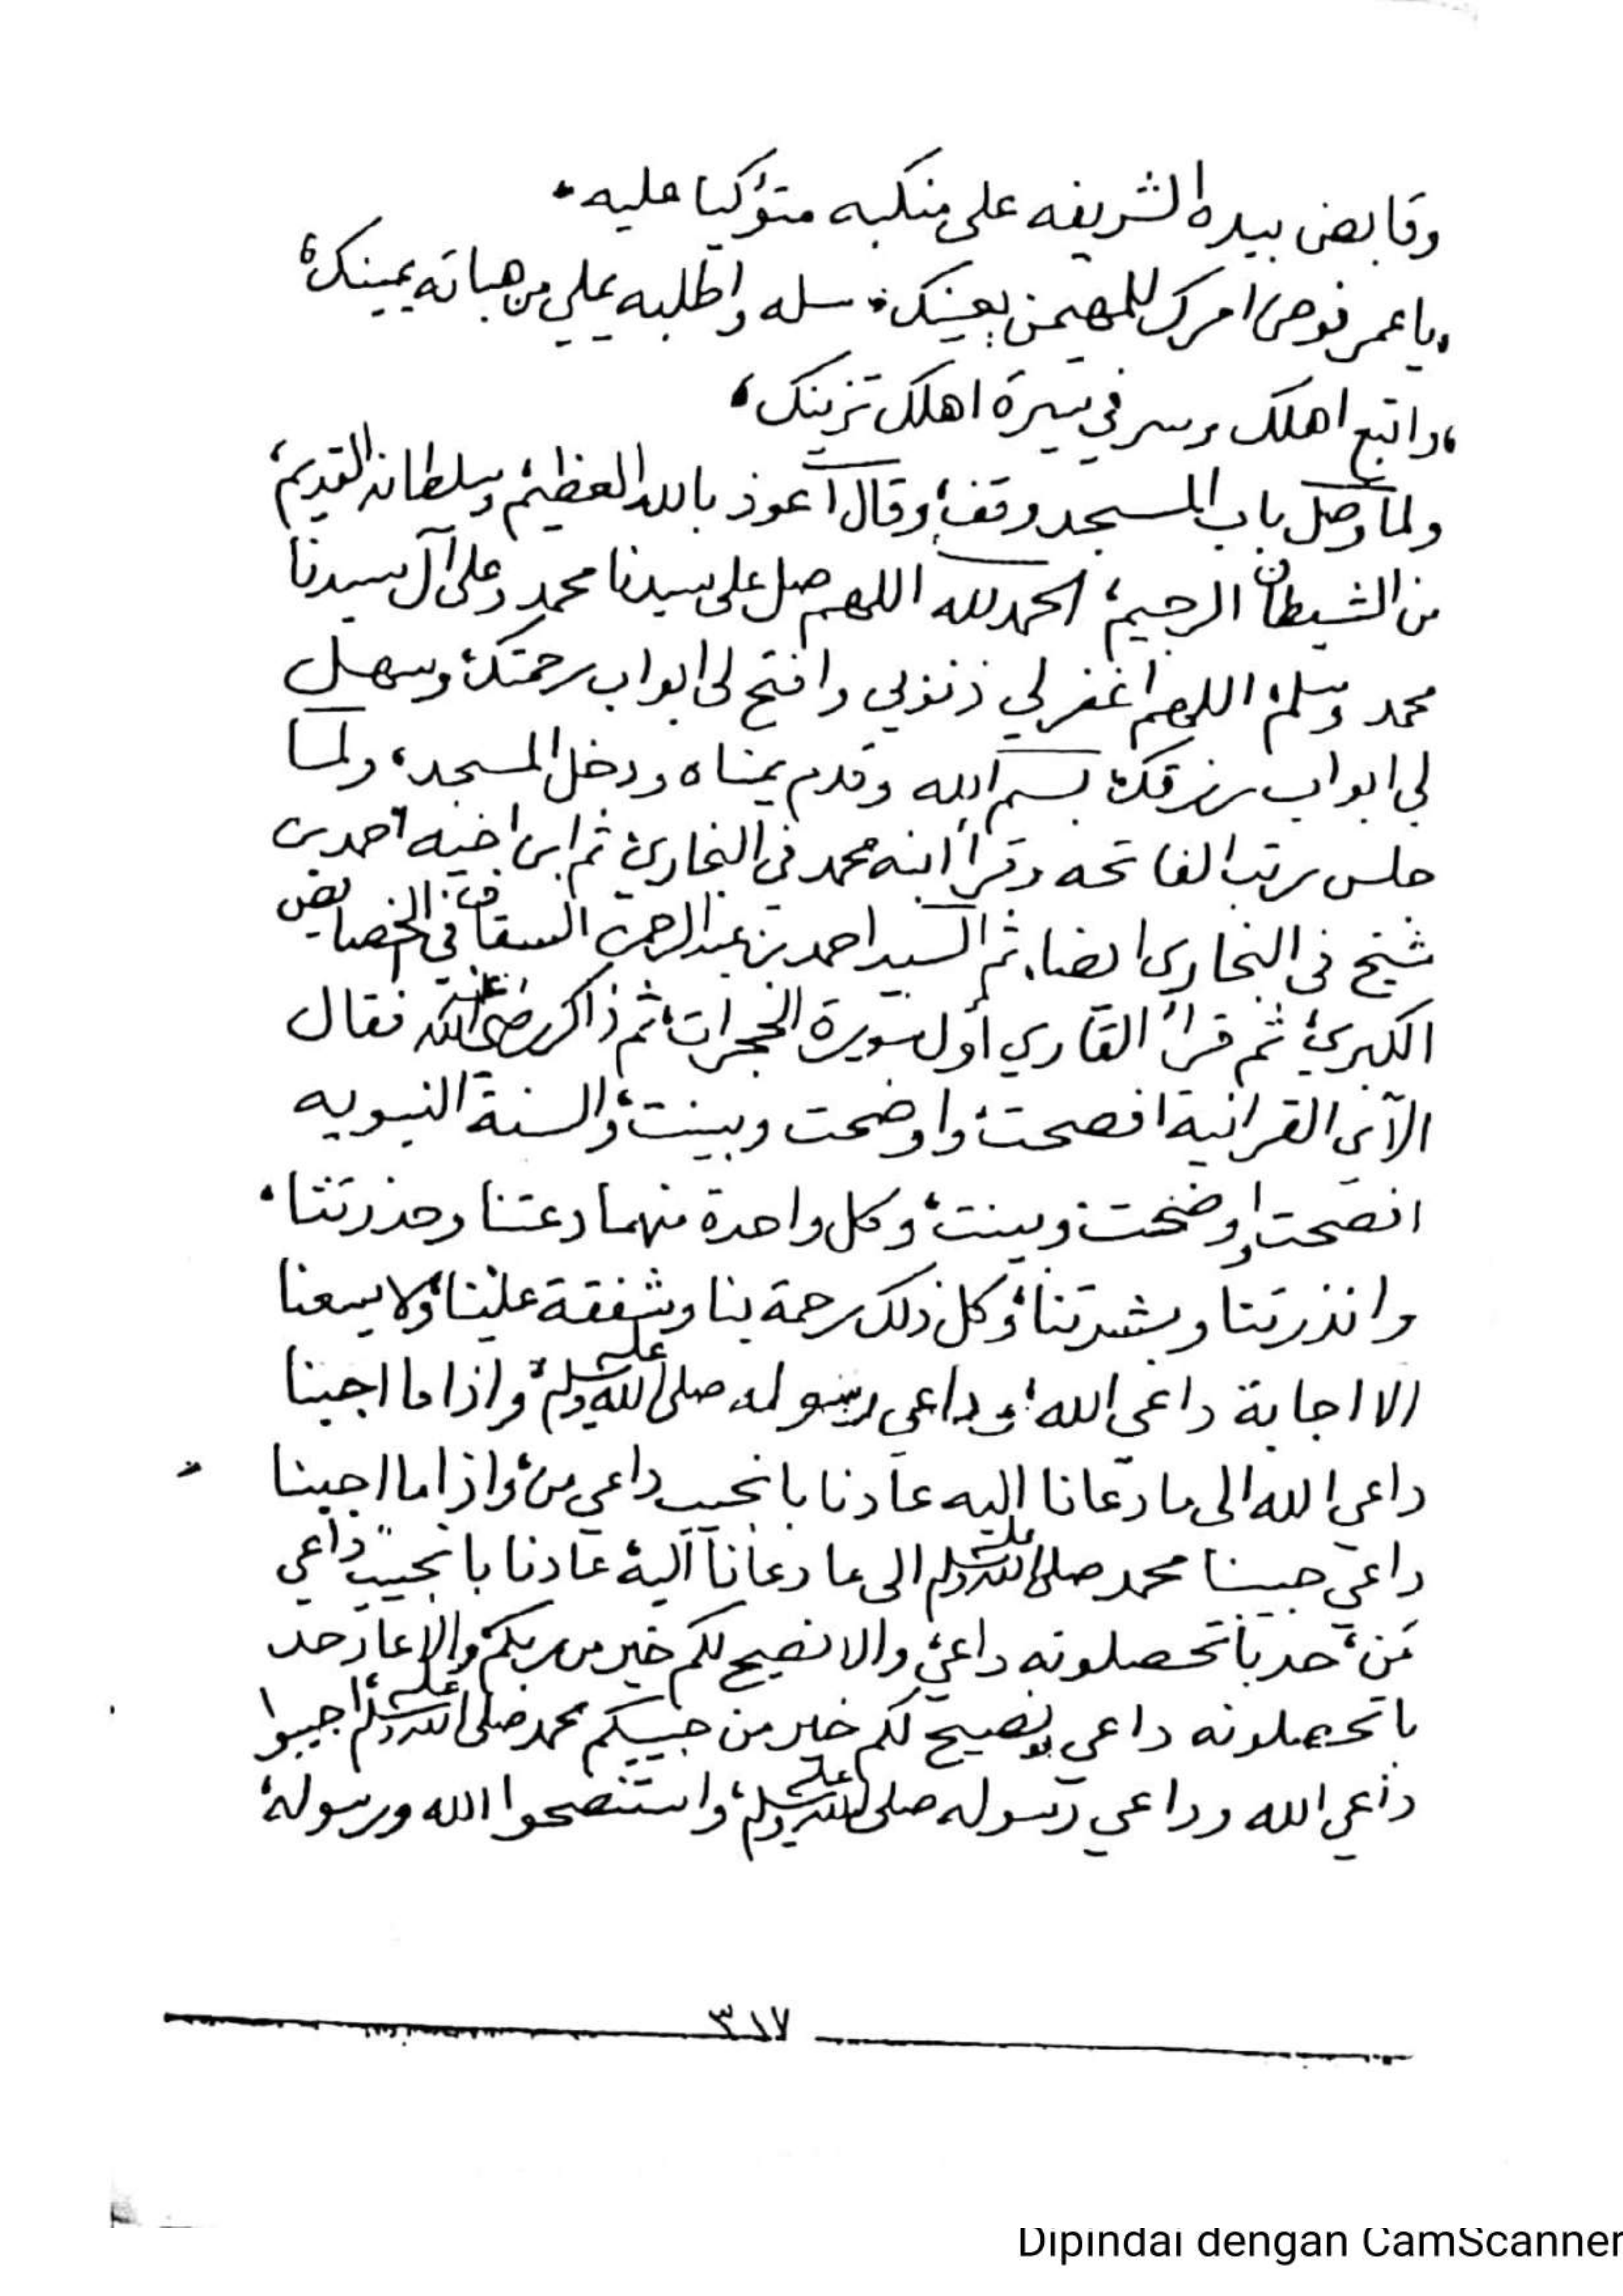 وقابض بيده الشريفه على منكبه متؤكيا عليه.
،ياعمر فوض امرك للمهيمن يعينك، سله واطلبه يملي من هباته يمينك،
،واتبع اهلك وسر في سيرة اهلك تزينك،
ولما وصل باب المسجد وقف، وقال أعوذ بالله العظيم، وسلطانه القديم،
من الشيطان الرجيم، الحمدلله اللهم صل على سيدنا محمد وعلى آل سيدنا
محمد وسلم، اللهم اغفر لي ذنوبي وافتح لي ابواب رحمتك، وسهل
لي ابواب رزقك، بسم الله وقدم يمناه ودخل المسجد، ولما
جلس رتب الفاتحه وقرأ ابنه محمد في البخاري، ثم ابن اخيه احمد بن
شيخ في البخاري ايضا، ثم السيد احمد بن عبدالرحمن السقاف، في الخصايص
الكبرى، ثم قرأ القاري أول سورة الحجرات، ثم ذاكر رضي الله عنه فقال
الآي القرانية افصحت، واوضحت وبينت، والسنة النبويه
افصحت واوضحت، وبينت، وكل واحدة منهما دعتنا وحذرتنا،
وانذرتنا وبشرتنا، وكل ذلك رحمة بنا وشفقة علينا، ولا يسعنا
الا اجابة داعي الله، وداعي رسوله صلى الله عليه وسلم، واذا ما اجبنا
داعي الله الى ما دعانا اليه عادنا بانجيب داعي من، واذا ما اجبنا
داعي حبيبنا محمد صلى الله عليه وسلم الى ما دعانا اليه عادنا بانجيب داعي
من، حد باتحصلونه داعي، والا نصيح لكم خير من ربكم، والا عاد حد
باتحصلونه داعي نصيح لكم خير من حبيبكم محمد صلى الله عليه وسلم، اجيبوا
داعي الله وداعي رسوله صلى الله عليه وسلم، واستنصحوا الله ورسوله،
٣١٧
Dipindai dengan CamScanner